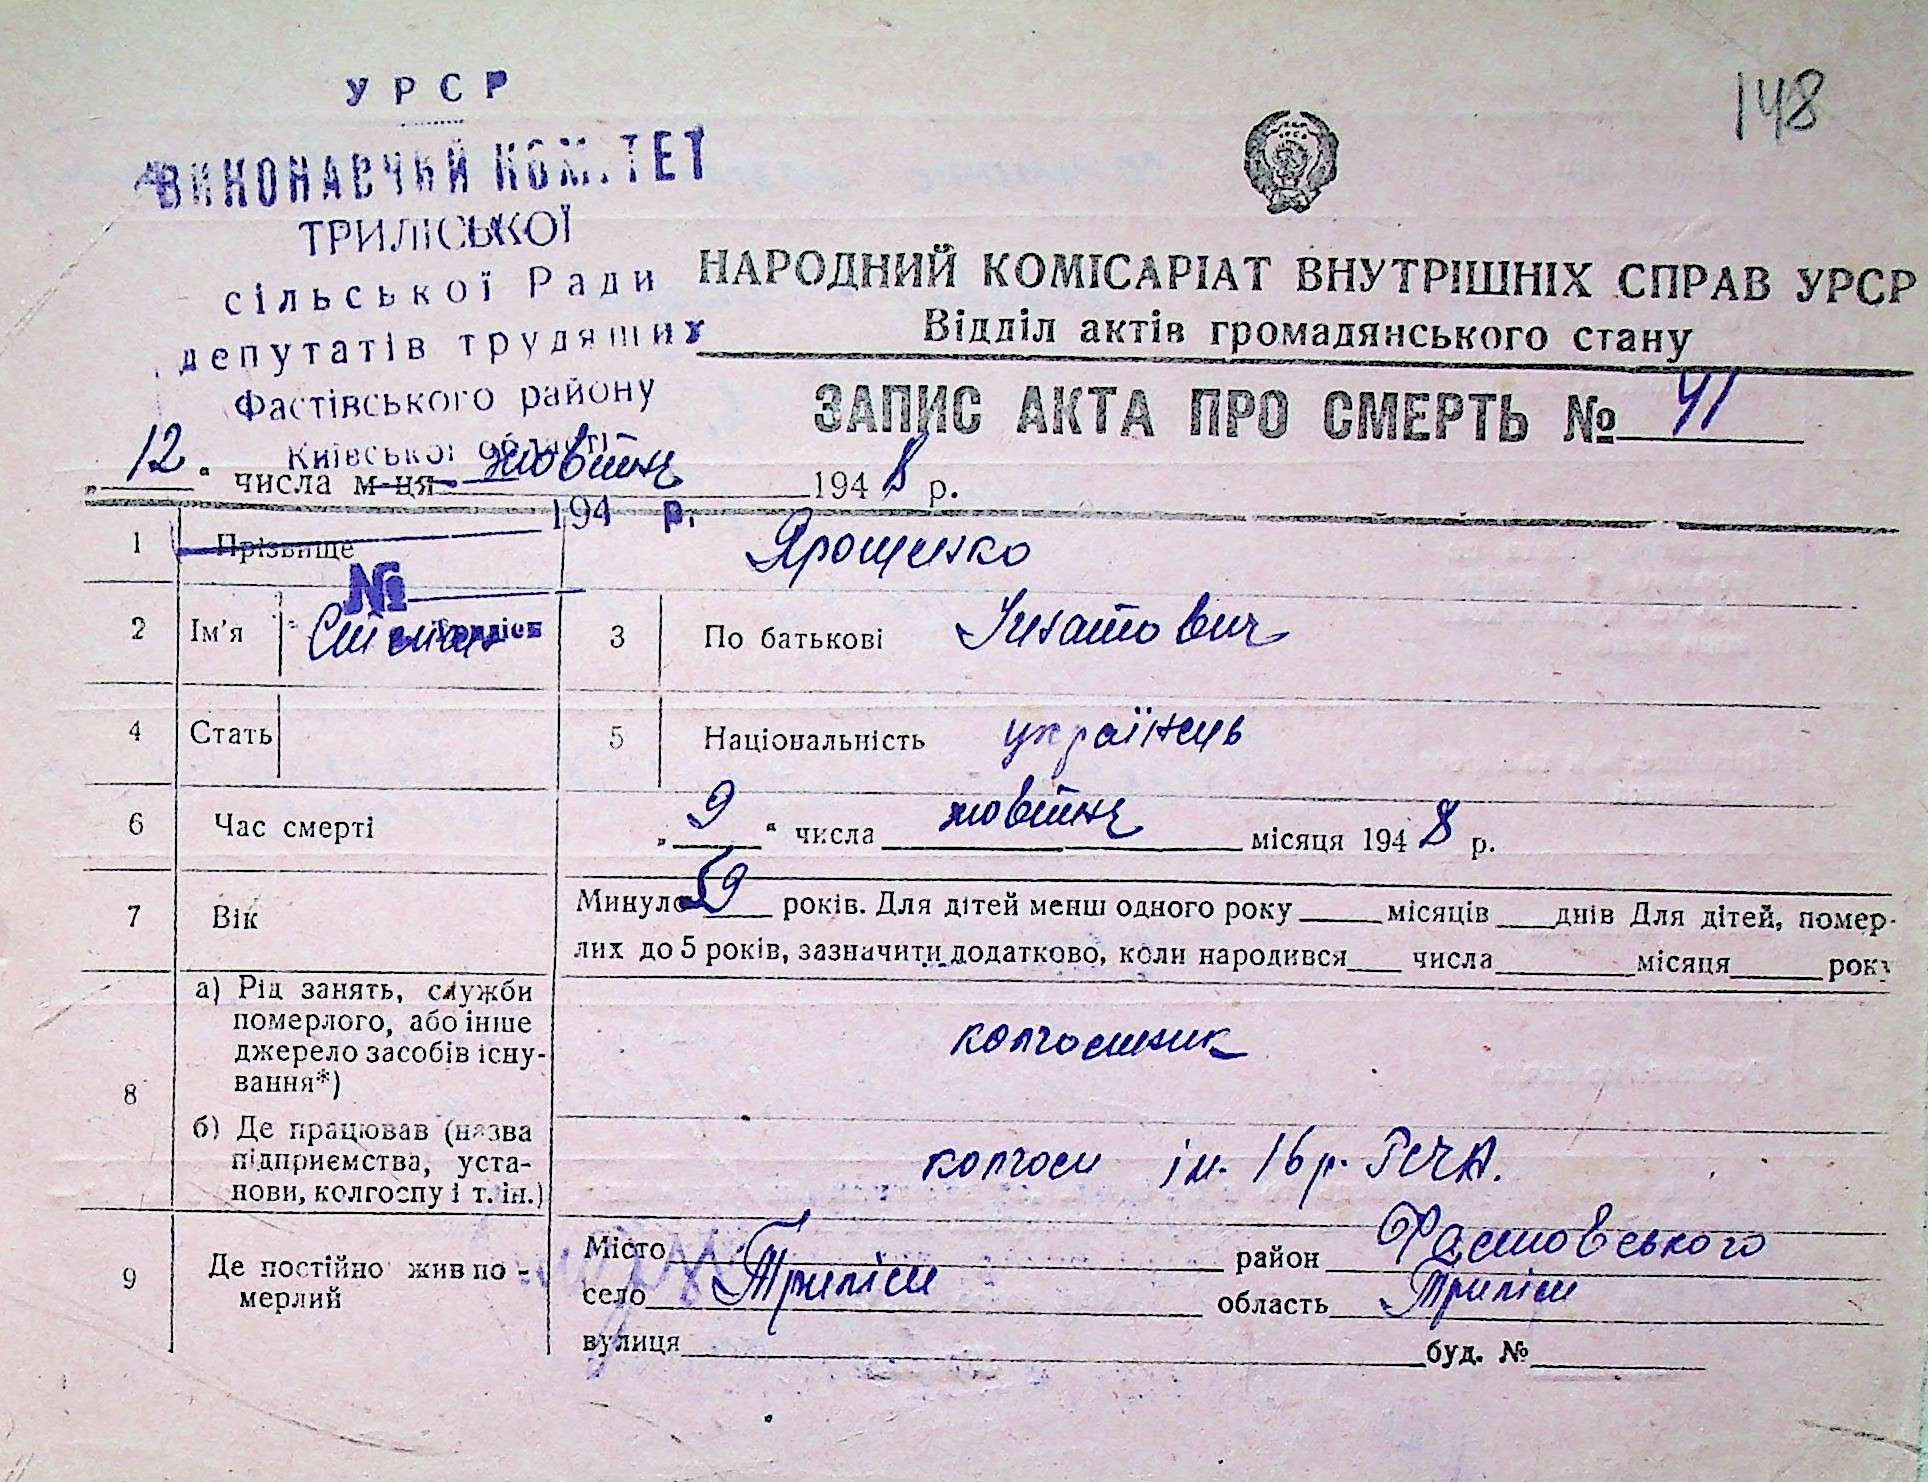 148
УРСР
ВИКОНАВЧИЙ КОМІТЕТ
ТРИЛІСЬКОЇ
сільської Ради
депутатів трудящих
Фастівського району
Київської області
194 р.
№
НАРОДНИЙ КОМІСАРІАТ ВНУТРІШНІХ СПРАВ УРСР
Відділ актів громадянського стану
ЗАПИС АКТА ПРО СМЕРТЬ № 41
„12“ числа м-ця жовтня 1948 р.
1 Прізвище Ярощенко
2 Ім'я Степан 3 По батькові Ігнатович
4 Стать 5 Національність українець
6 Час смерті „9“ числа жовтня місяця 1948 р.
7 Вік Минуло 59 років. Для дітей менш одного року місяців днів Для дітей, помер-
лих до 5 років, зазначити додатково, коли народився числа місяця року
8 а) Рід занять, служби
померлого, або інше
джерело засобів існу-
вання*) колгоспник
б) Де працював (назва
підприємства, уста-
нови, колгоспу і т. ін.) колгосп ім. 16 р. РСЧА.
9 Де постійно жив по-
мерлий
Місто район Фастовського
село Триліси область Триліси
вулиця буд. №